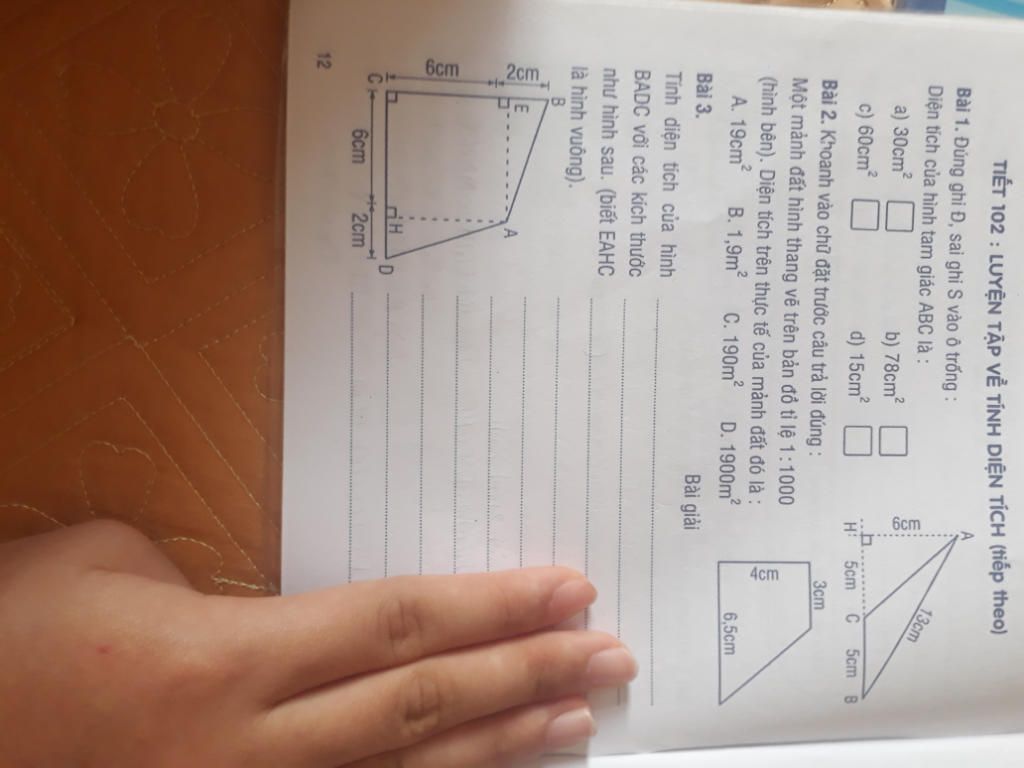 TIẾT 102 : LUYỆN TẬP VỀ TÍNH DIỆN TÍCH (tiếp theo)
Bài 1. Đúng ghi Đ, sai ghi S vào ô trống :
Diện tích của hình tam giác ABC là :
a) 30cm² b) 78cm²
c) 60cm² d) 15cm²
A
6cm
13cm
H 5cm C 5cm B
Bài 2. Khoanh vào chữ đặt trước câu trả lời đúng :
Một mảnh đất hình thang vẽ trên bản đồ tỉ lệ 1 : 1000
(hình bên). Diện tích trên thực tế của mảnh đất đó là :
A. 19cm² B. 1,9m² C. 190m² D. 1900m²
3cm
4cm
6,5cm
Bài 3.
Tính diện tích của hình
BADC với các kích thước
như hình sau. (biết EAHC
là hình vuông).
Bài giải
B
2cm
E
A
6cm
C
H
D
6cm 2cm
12